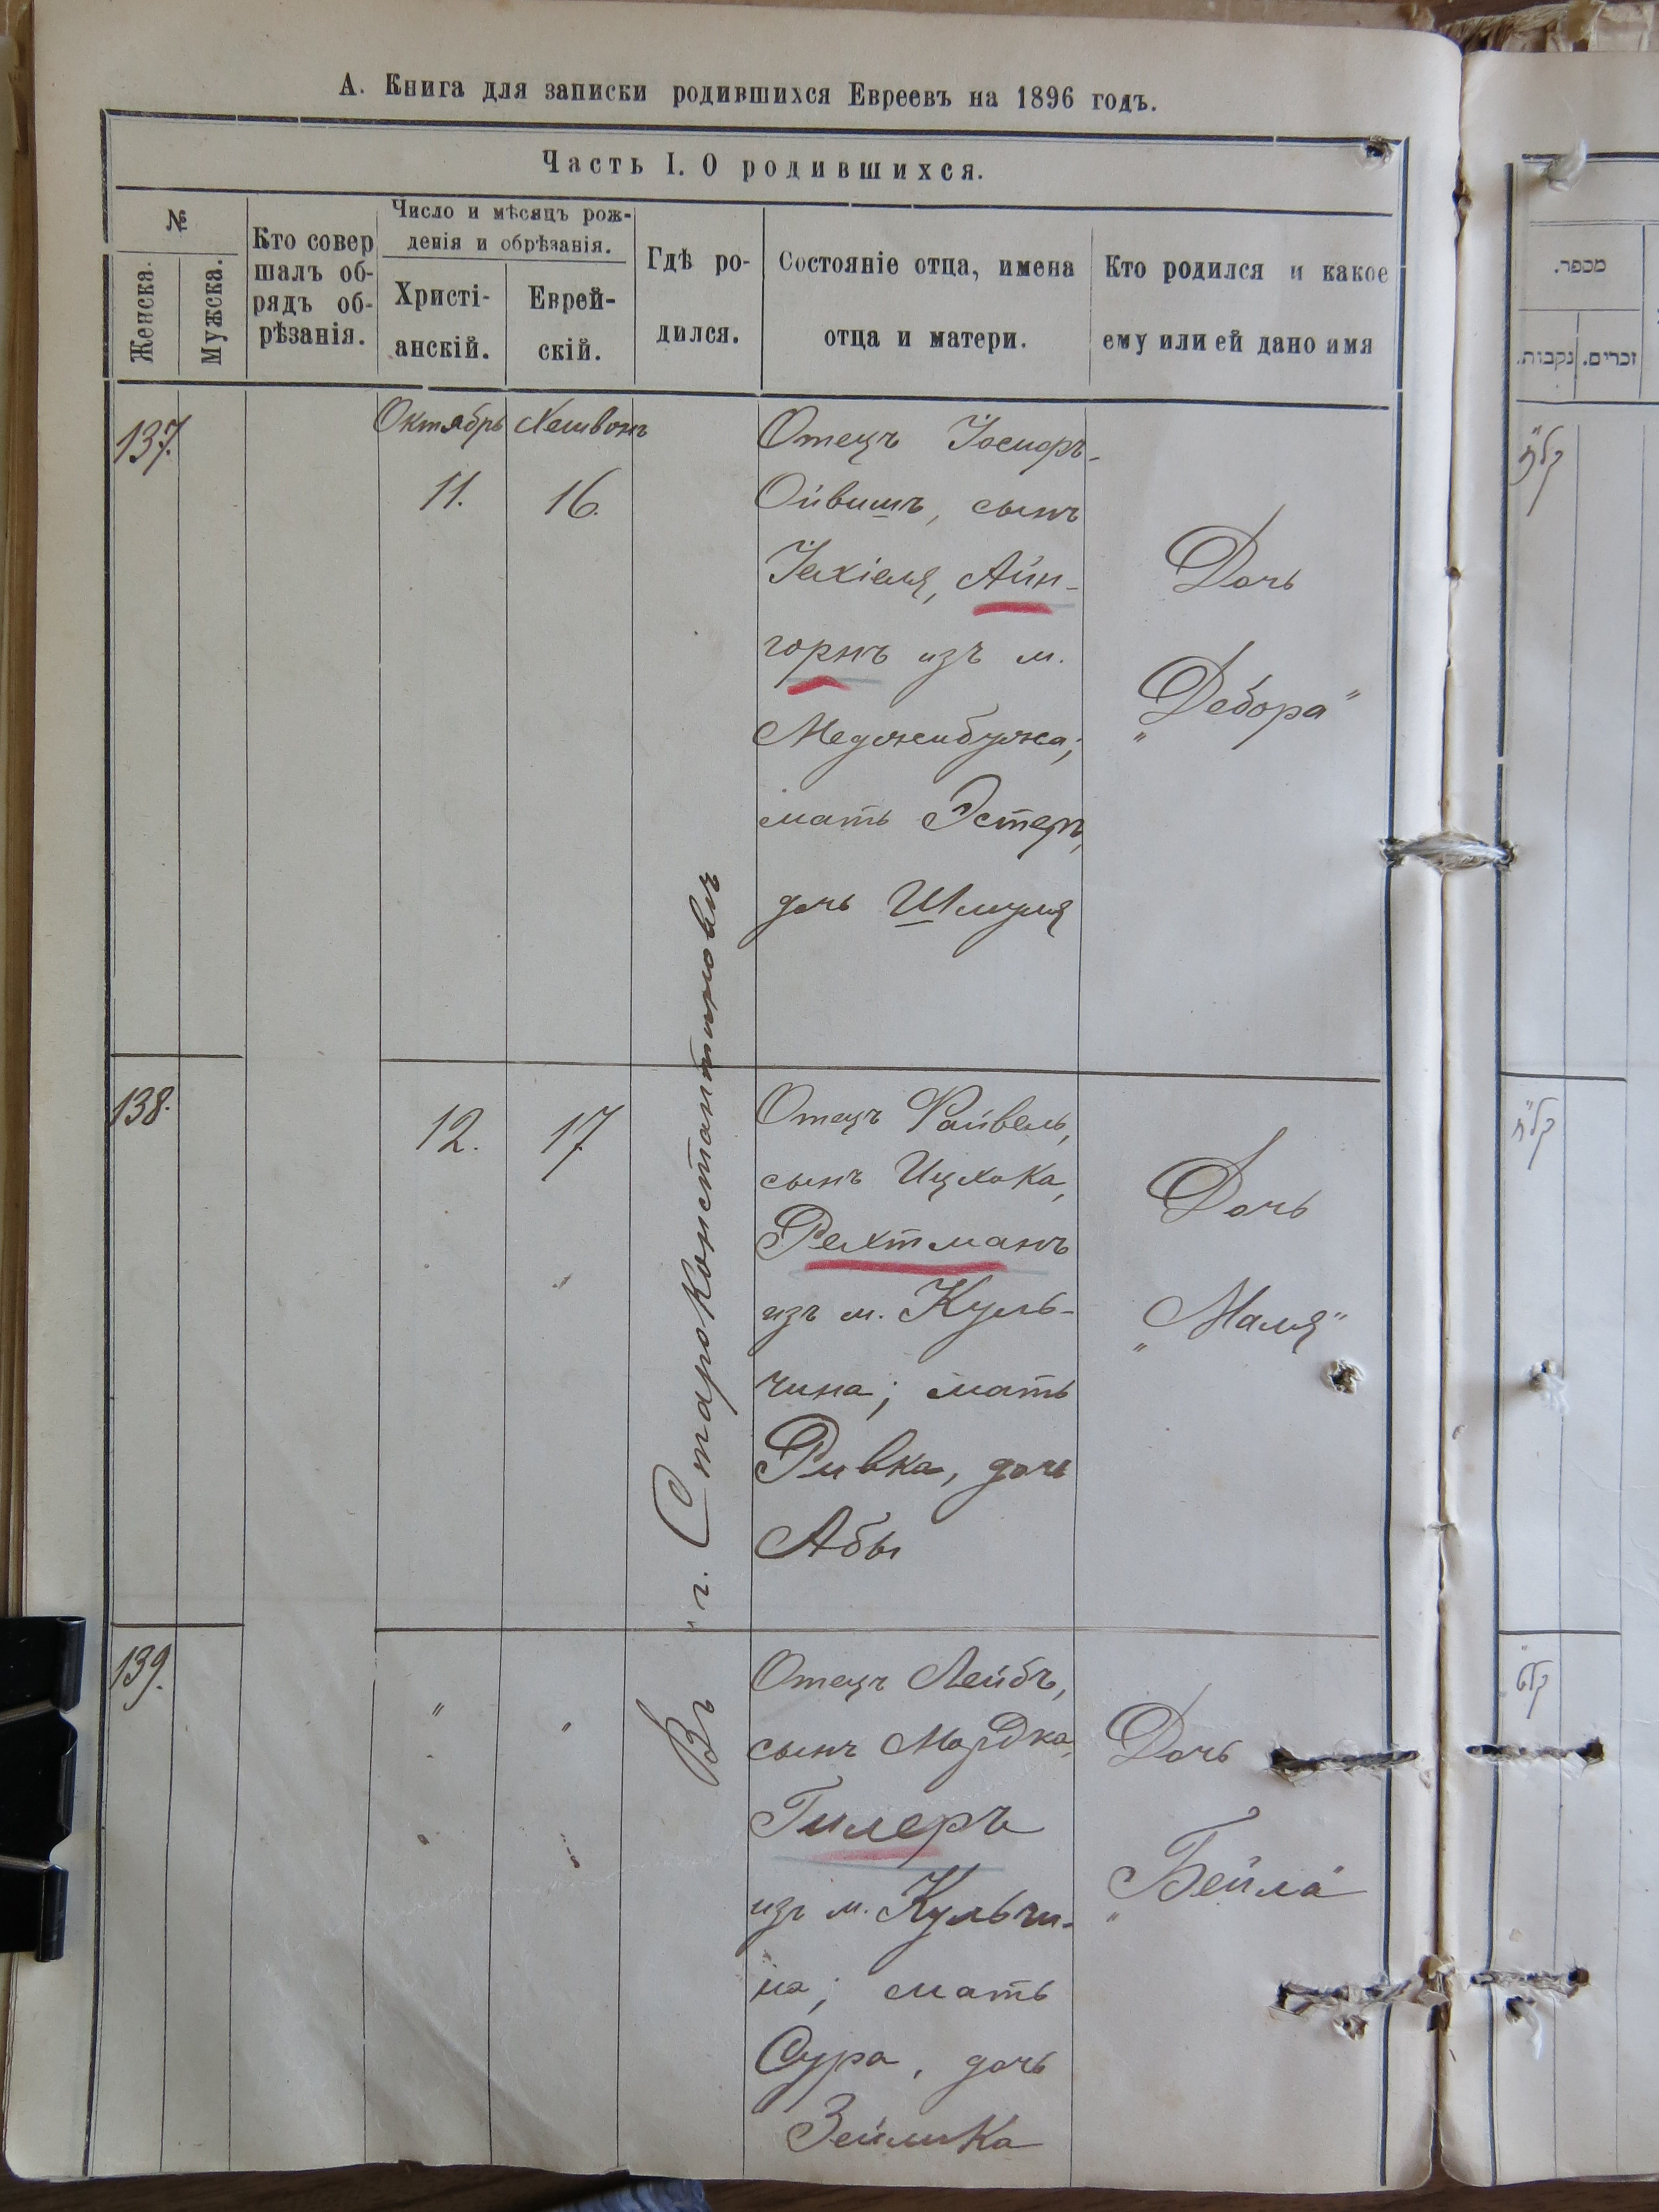 А. Книга для записки родившихся Евреевъ на 1896 годъ.
Часть I. О родившихся.
№
Женска.
Мужска.
Кто совер
шалъ об-
рядъ об-
рѣзанія.
Число и мѣсяцъ рож-
денія и обрѣзанія.
Христі-
анскій.
Еврей-
скій.
Гдѣ ро-
дился.
Состояніе отца, имена
отца и матери.
Кто родился и какое
ему или ей дано имя
מכפר.
נקבות.
זכרים.
137.
Октябрь
11.
Хешвонъ
16.
Въ г. Староконстантиновѣ
Отецъ Іосифъ-
Ойвишъ, сынъ
Іехіеля, Айн-
горнъ изъ м.
Меджибужа;
мать Эстеръ,
дочь Шмуля
Дочь
„Дебора"
קל״ז
138.
12.
17
Отецъ Файвель,
сынъ Ицхока,
Рехтманъ
изъ м. Куль-
чина; мать
Ривка, дочь
Абы
Дочь
„Маля"
קל״ח
139.
"
"
Отецъ Лейбъ,
сынъ Мордка,
Гилеръ
изъ м. Кульчи-
на; мать
Сура, дочь
Зейлика
Дочь
„Бейла"
קל״ט